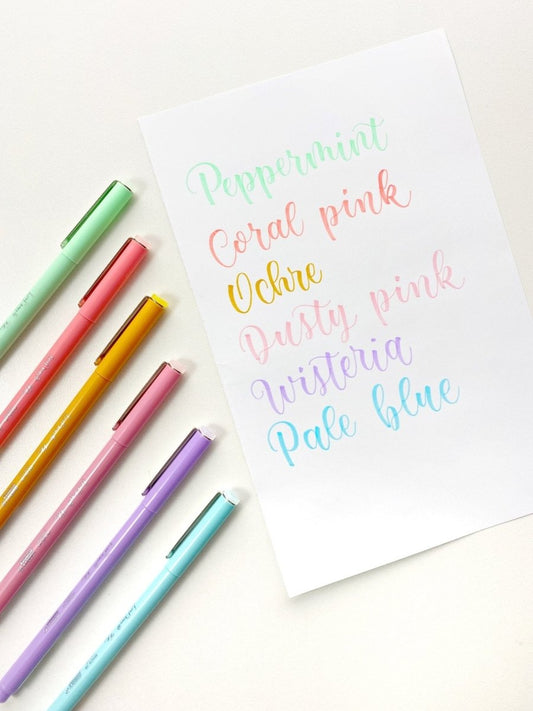 Peppermint
Coral pink
Ochre
Dusty pink
Wisteria
Pale blue